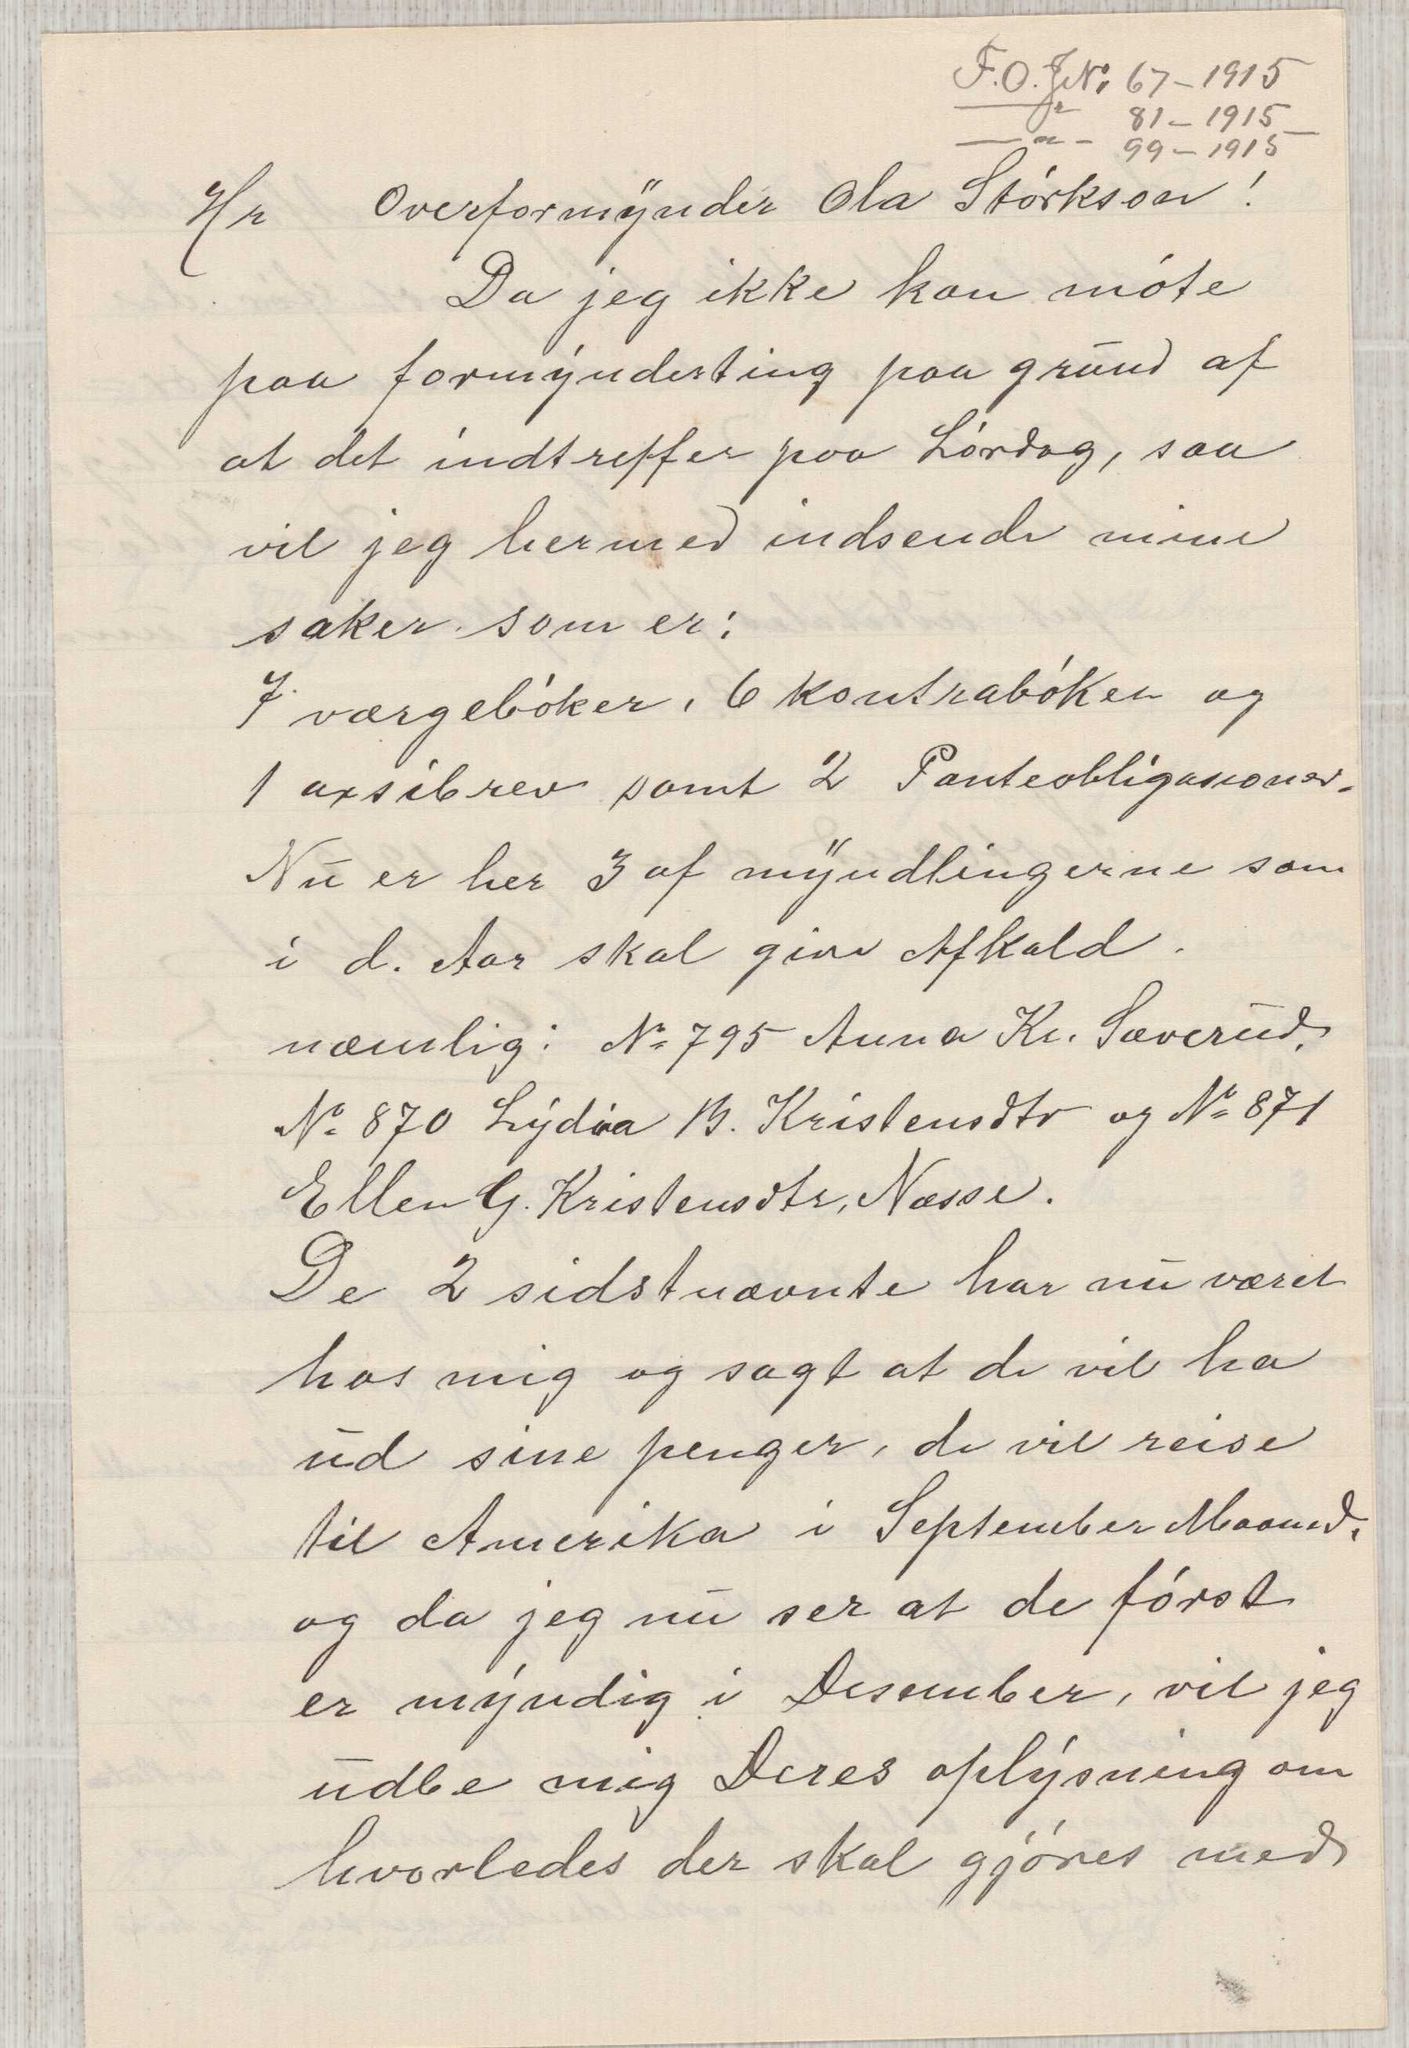 F.O.J№ 67-1915
— " — 81-1915
— " — 99-1915
Hr Overformynder Ola Störkson!
Da jeg ikke kan möte
paa formynderting paa grund af
at det indtreffer paa Lördag, saa
vil jeg hermed indsende mine
saker som er:
7 værgeböker, 6 kontraböker og
1 axsibrev samt 2 Panteobligasioner.
Nu er her 3 af myndlingerne som
i d. Aar skal give Afkald.
næmlig: № 795 Anna Kr. Sæverud,
№ 870 Lydia B. Kristensdtr og № 871
Ellen G. Kristensdtr, Næsse.
De 2 sidstnævnte har nu været
hos mig og sagt at de vil ha
ud sine penger, de vil reise
til Amerika i September Maaned,
og da jeg nu ser at de först
er myndig i Desember, vil jeg
udbe mig Deres oplysning om
hvorledes der skal gjöres med